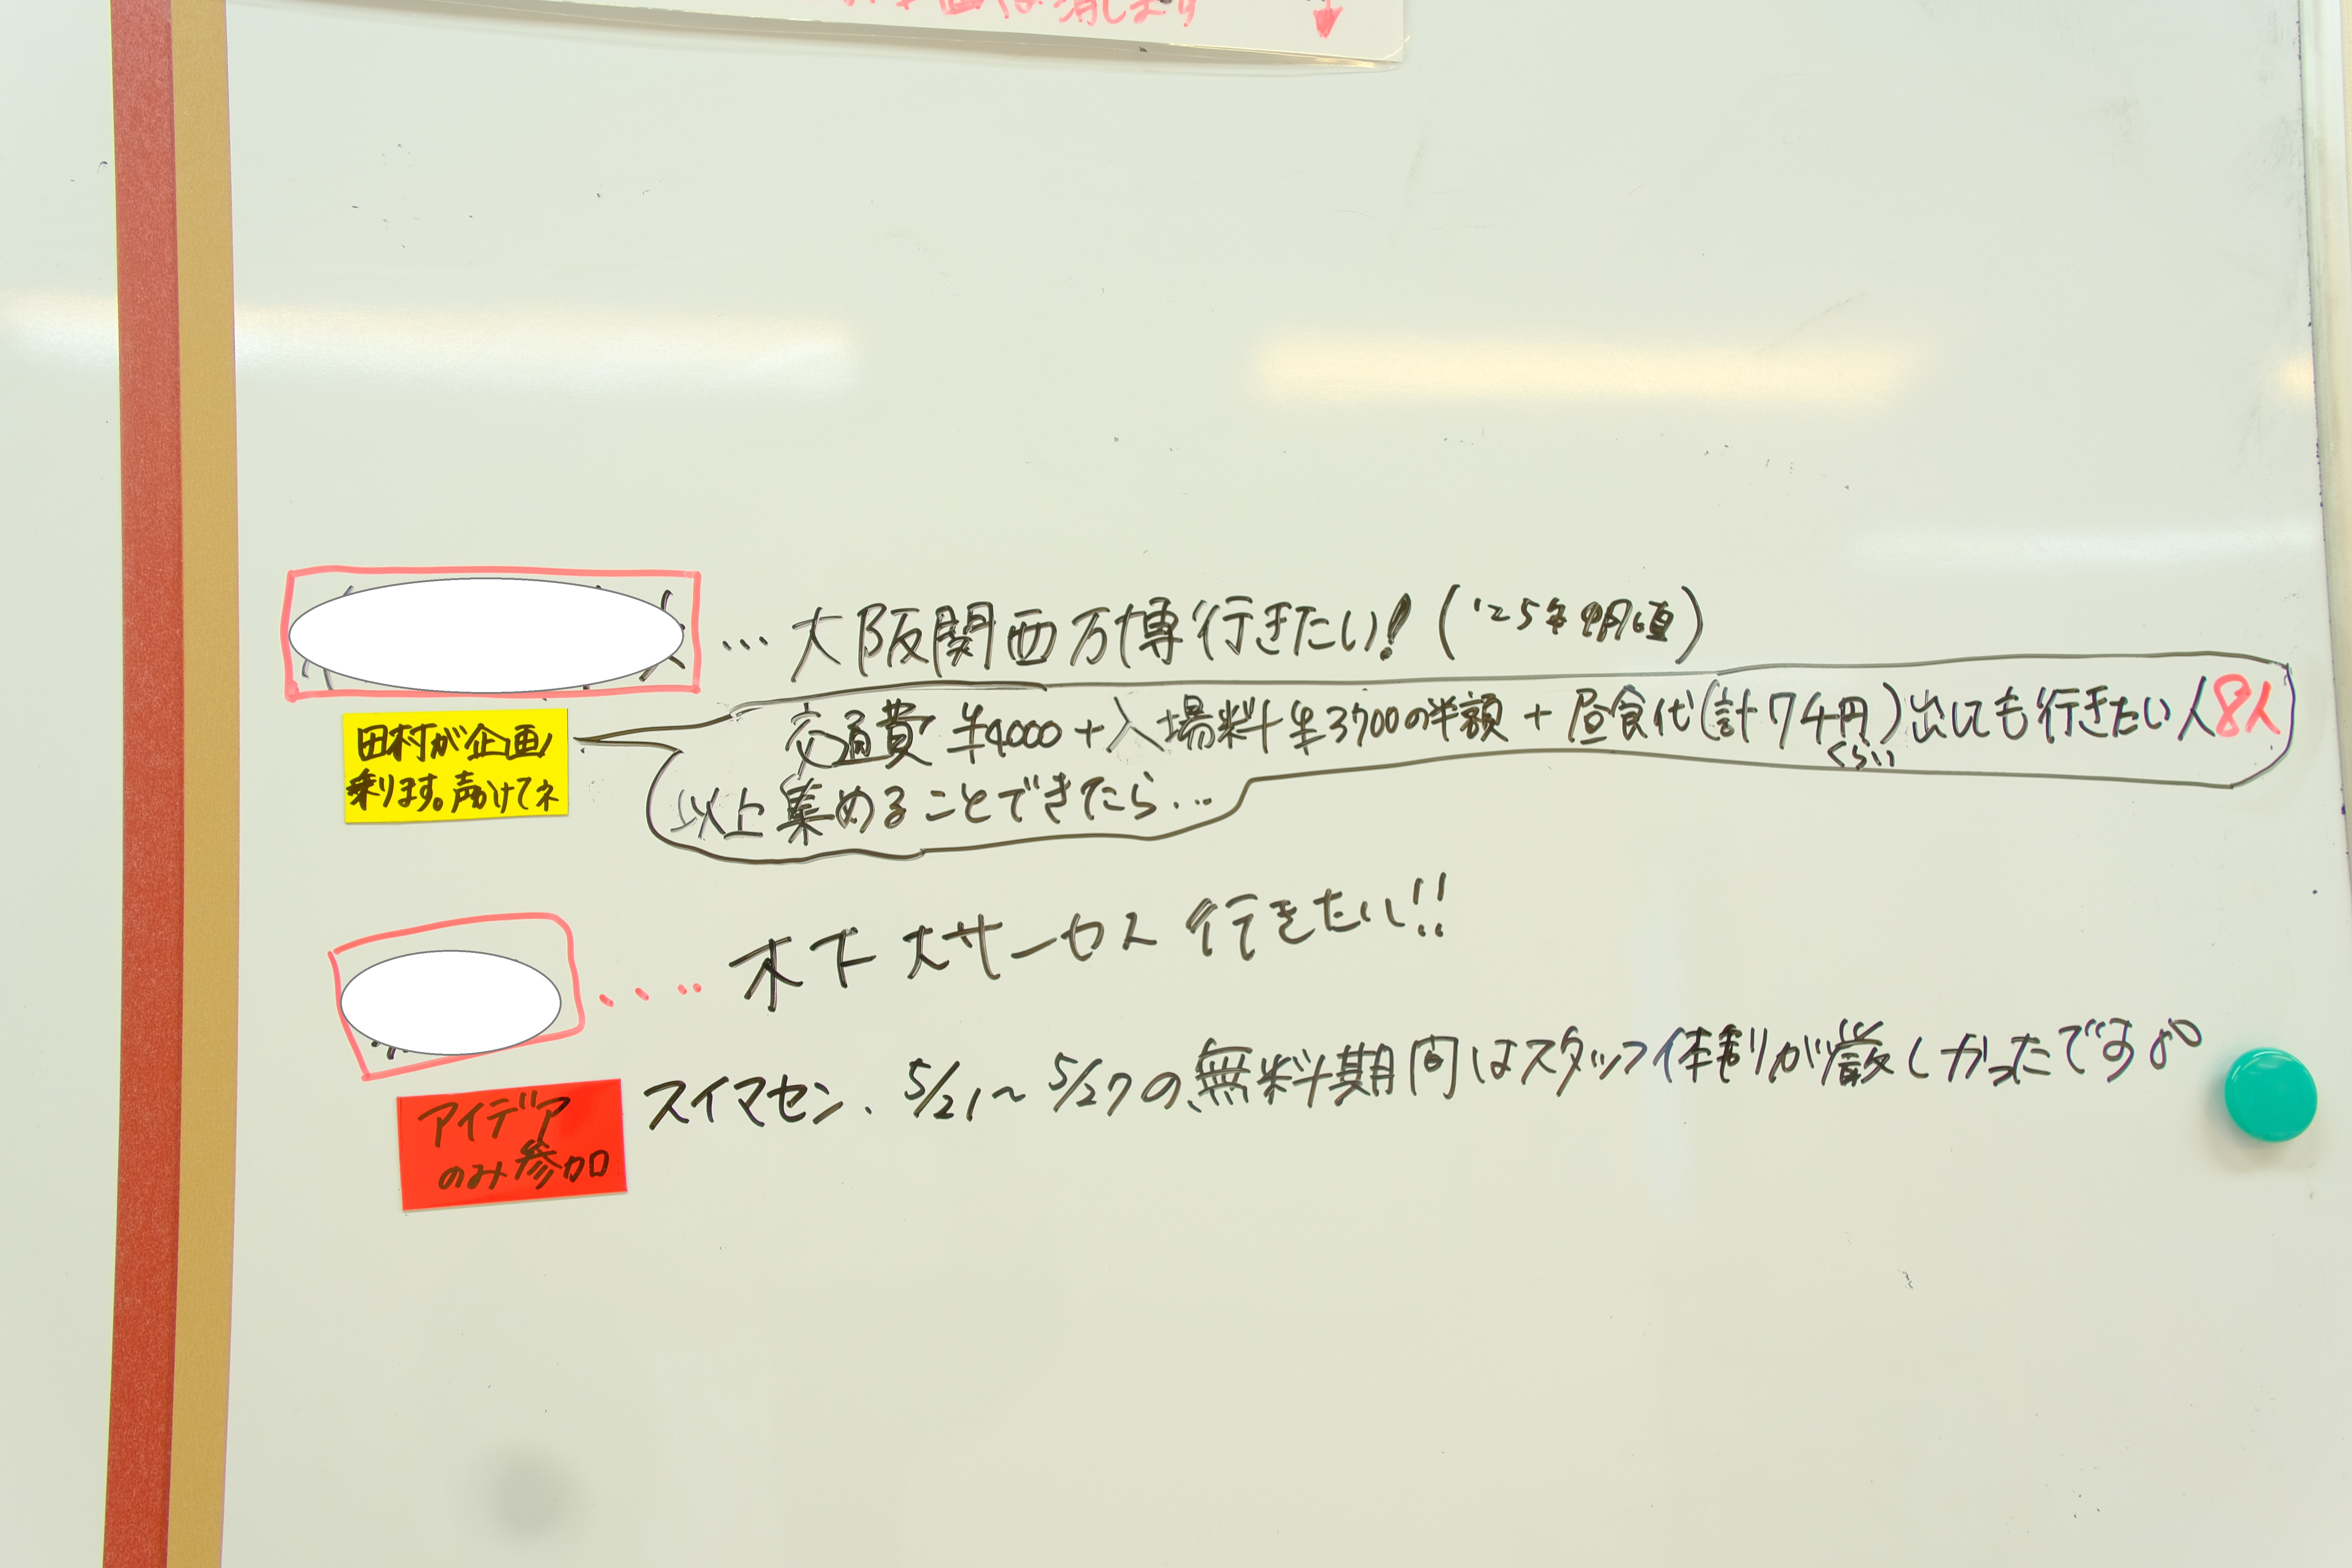 は消します
… 大阪関西万博行きたい! ('25年4月頃)
田村が企画
乗ります。声かけてネ
交通費 ¥4000+入場料¥3700の半額 + 昼食代(計7千円くらい)出しても行きたい人8人
以上集めることできたら…
.... 木下大サーカス 行きたい!!
スイマセン、5/21〜5/27の無料期間はスタッフ体制が厳しかったです
アイデア
のみ参加